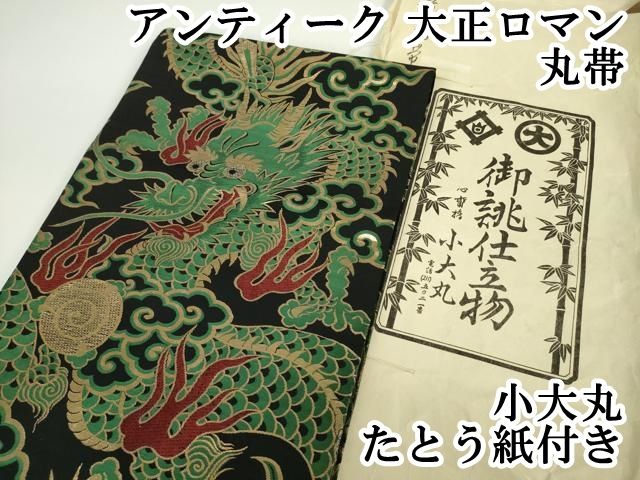 アンティーク 大正ロマン
丸帯
大
御誂仕立物
心斎橋 小大丸
電話(211)五〇二一番
小大丸
たとう紙付き